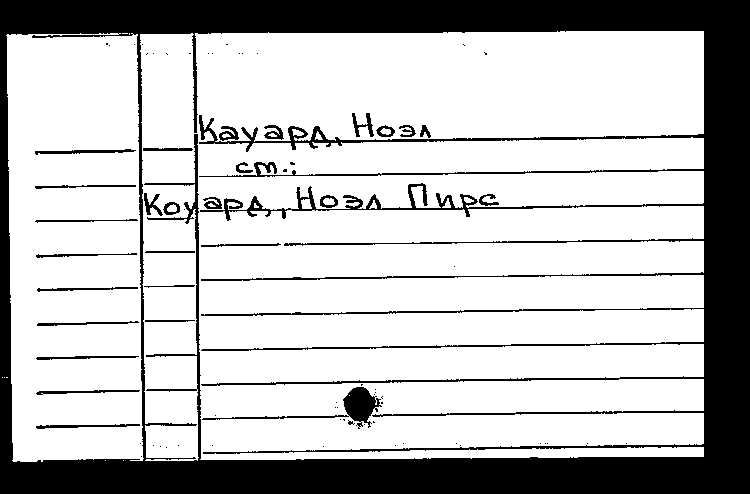 Кауард, Ноэл
ст.:
Коуард, Ноэл Пирс